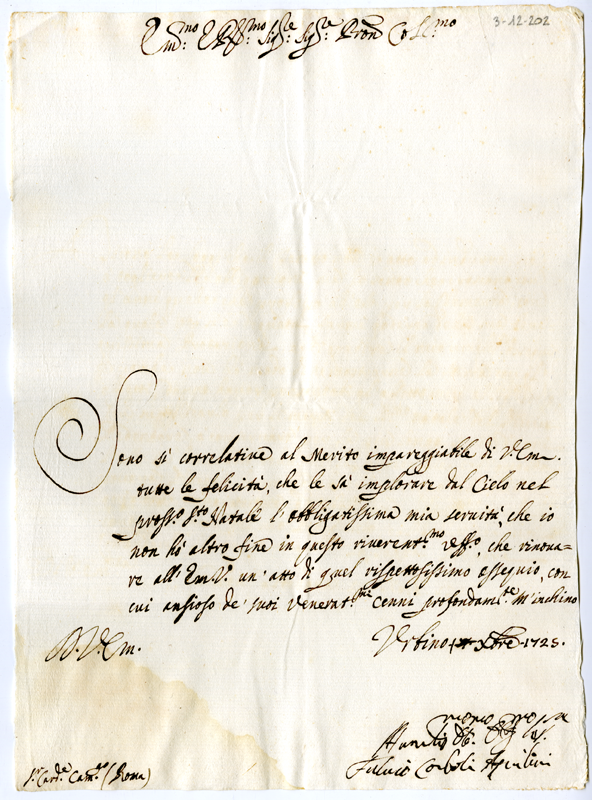 3-12-202
Em:mo e R:mo Sig:re Sig:re Pron Col:mo
Sono sì correlative al Merito impareggiabile di V.Em.
tutte le felicità, che le sà implorare dal Cielo nel
pross:o S:to Natale l'obbligatissima mia servitù, che io
non hò altro fine in questo riverent:mo off:o, che rinova=
re all'Em.V. un'atto di quel rispettosissimo ossequio, con
cui ansioso de' suoi venerat:mi cenni profondam:te m'inchino
D.V.Em. Urbino Xbre 1723.
Fulvio Corboli Aquilini
S.r Card.e Cam.go (Roma)